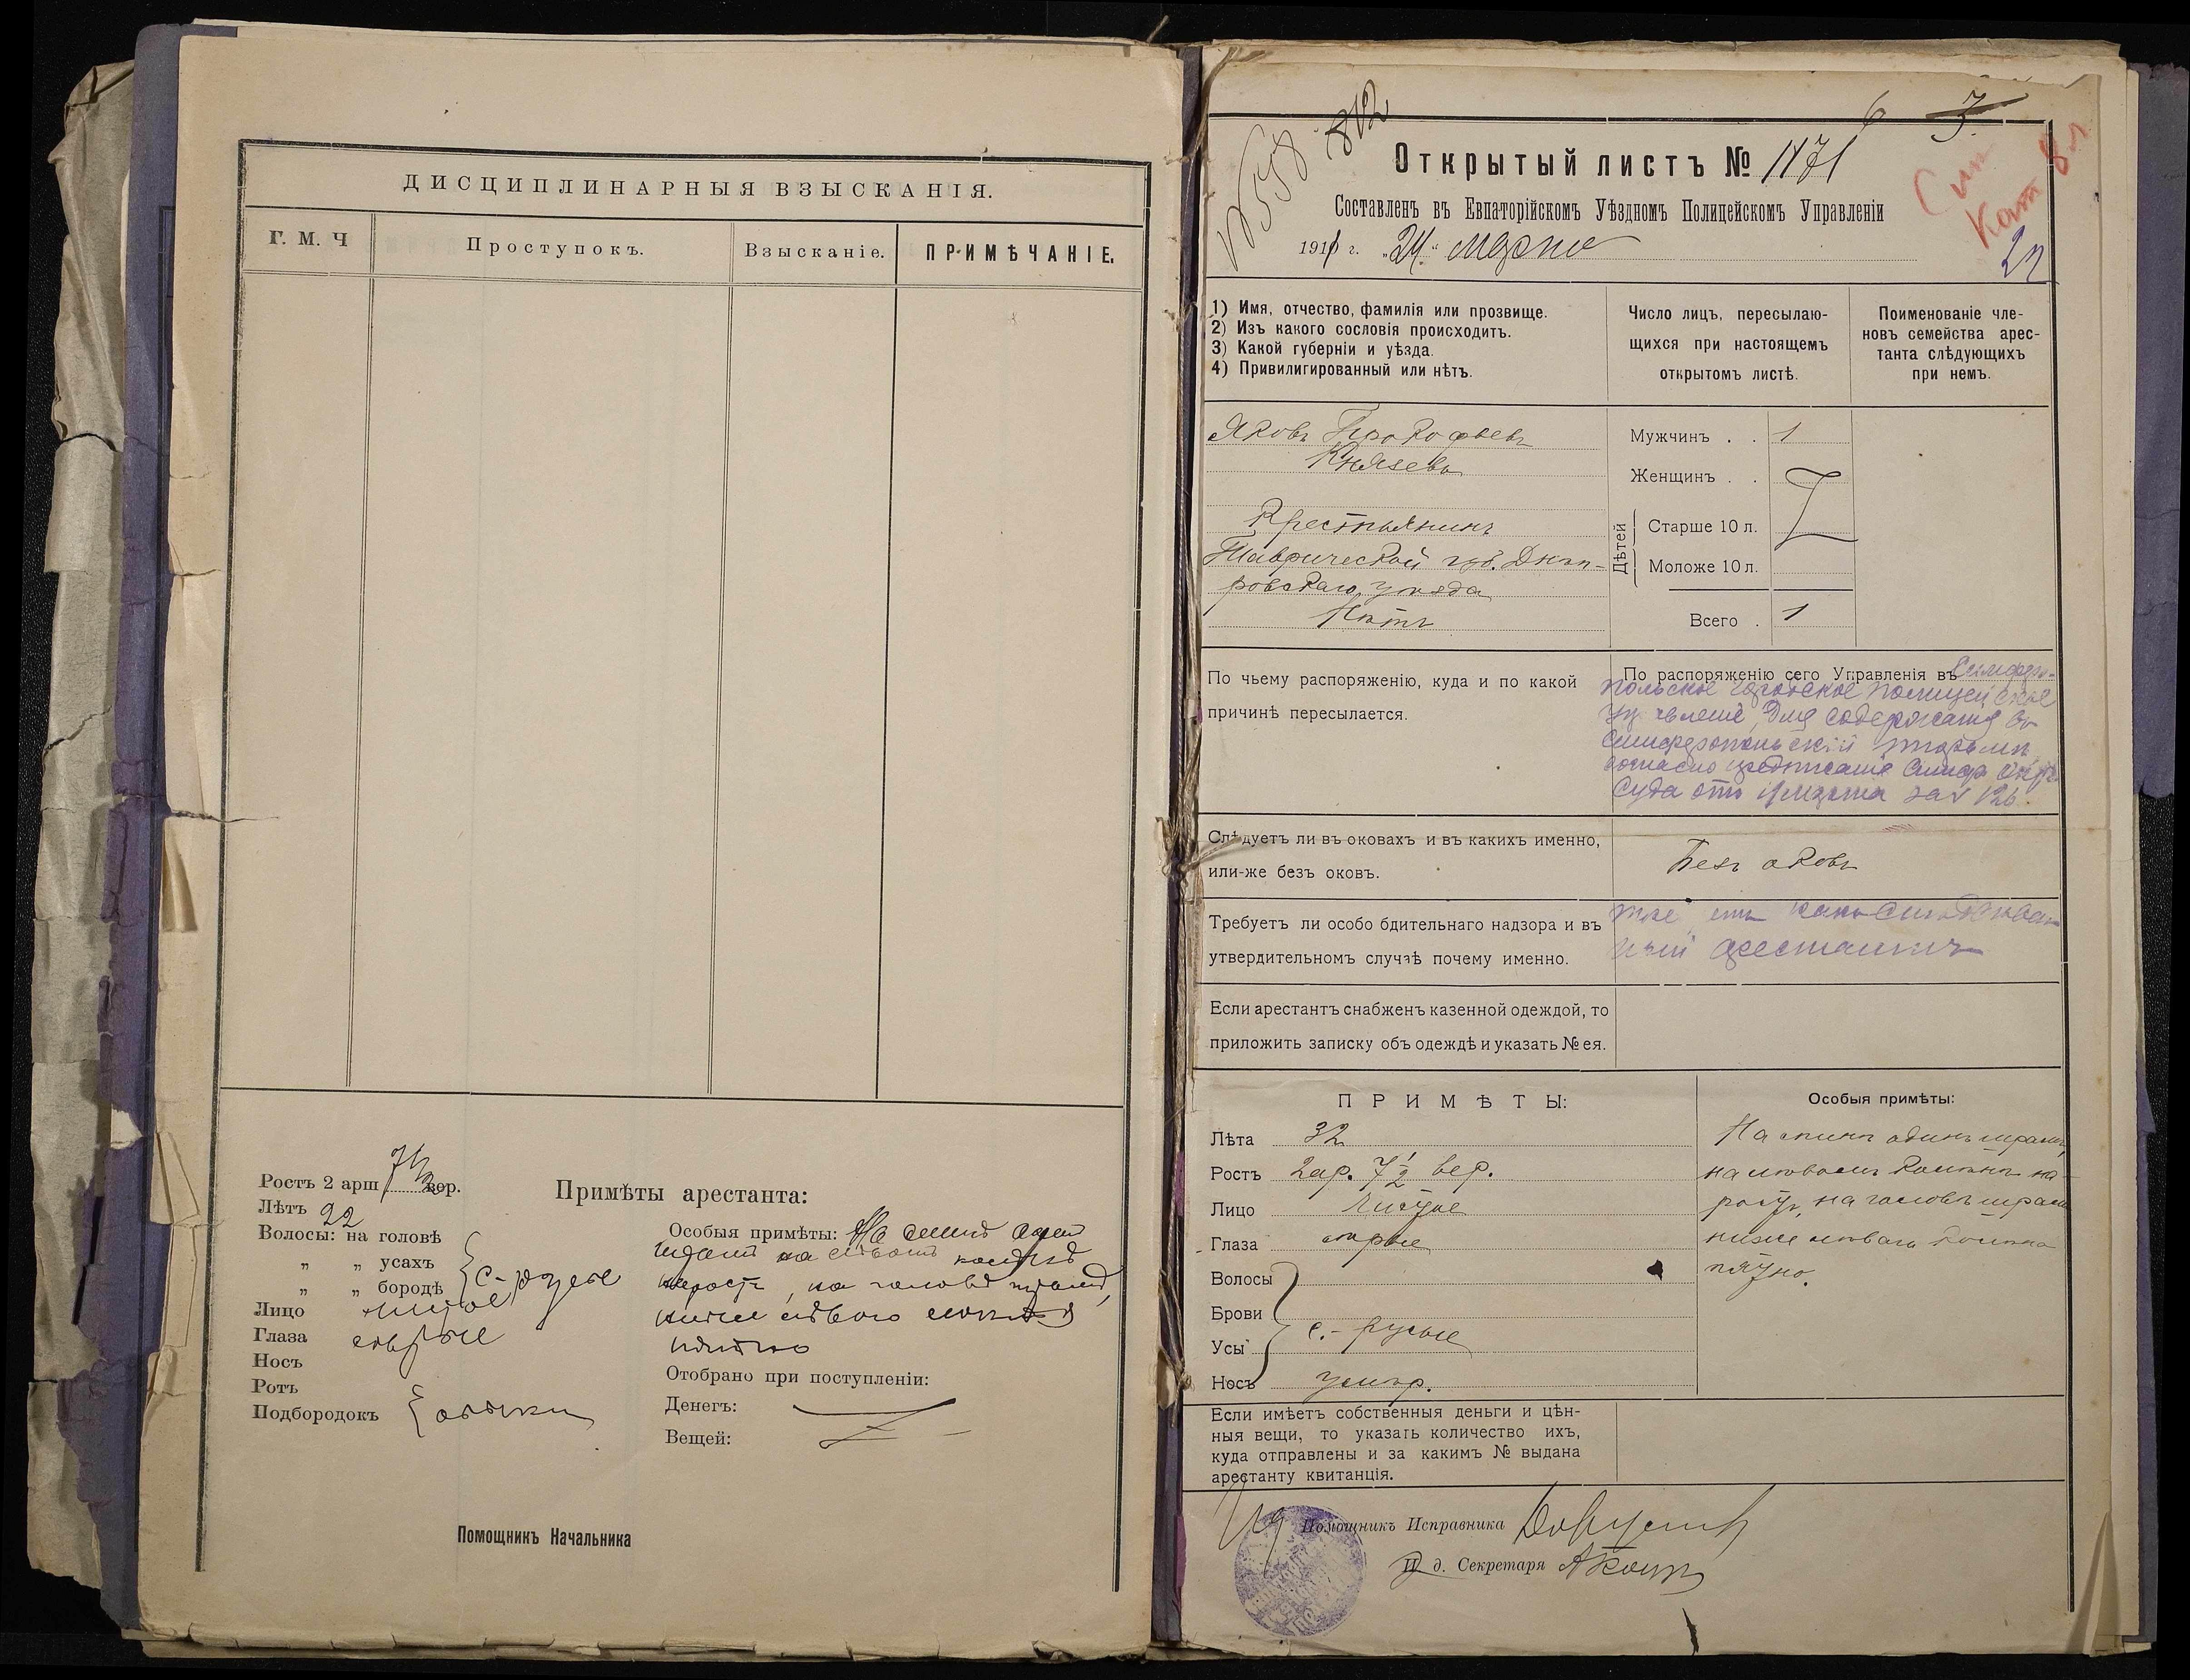 ДИСЦИПЛИНАРНЫЯ ВЗЫСКАНІЯ.
Г. М. Ч
Проступокъ.
Взысканіе.
ПРИМѢЧАНІЕ.
Ростъ 2 арш 7 1/2 вер.
Лѣтъ 22
Волосы: на головѣ
„ „ усахъ
„ „ бородѣ
с-русые
Лицо чистое
Глаза сѣрые
Носъ
Ротъ
Подбородокъ
Примѣты арестанта:
Особыя примѣты: На спинѣ одинъ
шрамъ на лѣвомъ колѣнѣ
наростъ, на головѣ шрамъ,
ниже лѣваго
пятно
Отобрано при поступленіи:
Денегъ:
Вещей:
Помощникъ Начальника
№ 558 812
6 3
Открытый листъ № 1171
Составленъ въ Евпаторійскомъ Уѣздномъ Полицейскомъ Управленіи
1911 г. „24“ марта
1) Имя, отчество, фамилія или прозвище.
2) Изъ какого сословія происходитъ.
3) Какой губерніи и уѣзда.
4) Привилигированный или нѣтъ.
Число лицъ, пересылаю-
щихся при настоящемъ
открытомъ листѣ.
Поименованіе чле-
новъ семейства арес-
танта слѣдующихъ
при немъ.
Яковъ Прокофьевъ
Князевъ
Крестьянинъ
Таврической губ. Днѣп-
ровскаго уѣзда
Нѣтъ
Мужчинъ . . 1
Женщинъ . .
Дѣтей
Старше 10 л.
Моложе 10 л.
Всего . 1
По чьему распоряженію, куда и по какой
причинѣ пересылается.
По распоряженію сего Управленія въ Симферо-
польское городское полицейское
Управленіе, для содержанія въ
Симферопольской тюрьмѣ
согласно предписанія Симф. Окр.
Суда отъ марта за № 126.
Слѣдуетъ ли въ оковахъ и въ какихъ именно,
или-же безъ оковъ.
Безъ оковъ
Требуетъ ли особо бдительнаго надзора и въ
утвердительномъ случаѣ почему именно.
какъ слѣдствен-
ный арестантъ
Если арестантъ снабженъ казенной одеждой, то
приложить записку объ одеждѣ и указать № ея.
ПРИМѢТЫ:
Лѣта 32
Ростъ 2 ар. 7 1/2 вер.
Лицо Чистое
Глаза сѣрые
Волосы
Брови
Усы с.- русые
Носъ умѣр.
Особыя примѣты:
На спинѣ одинъ шрамъ,
на лѣвомъ колѣнѣ на-
ростъ, на головѣ шрамъ
ниже лѣваго колѣна
пятно.
Если имѣетъ собственныя деньги и цѣн-
ныя вещи, то указать количество ихъ,
куда отправлены и за какимъ № выдана
арестанту квитанція.
Помощникъ Исправника
И д. Секретаря